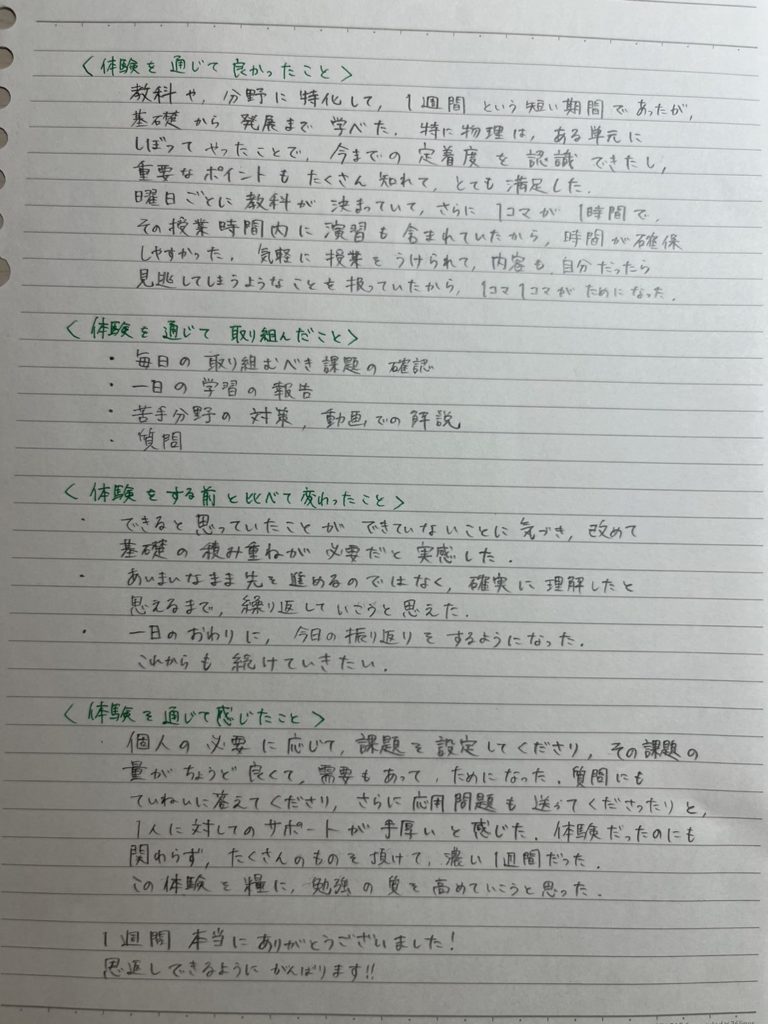 〈体験を通じて良かったこと〉
教科や、分野に特化して、1週間という短い期間であったが、
基礎から発展まで学べた。特に物理は、ある単元に
しぼってやったことで、今までの定着度を認識できたし、
重要なポイントもたくさん知れて、とても満足した。
曜日ごとに教科が決まっていて、さらに1コマが1時間で、
その授業時間内に演習も含まれていたから、時間が確保
しやすかった。気軽に授業をうけられて、内容も、自分だったら
見逃してしまうようなことを扱っていたから、1コマ1コマがためになった。
〈体験を通じて取り組んだこと〉
・毎日の取り組むべき課題の確認
・一日の学習の報告
・苦手分野の対策、動画での解説
・質問
〈体験をする前と比べて変わったこと〉
・できると思っていたことができていないことに気づき、改めて
基礎の積み重ねが必要だと実感した。
・あいまいなまま先を進めるのではなく、確実に理解したと
思えるまで、繰り返していこうと思えた。
・一日のおわりに、今日の振り返りをするようになった。
これからも続けていきたい。
〈体験を通じて感じたこと〉
・個人の必要に応じて、課題を設定してくださり、その課題の
量がちょうど良くて、需要もあって、ためになった。質問にも
ていねいに答えてくださり、さらに応用問題も送ってくださったりと、
1人に対してのサポートが手厚いと感じた。体験だったのにも
関わらず、たくさんのものを頂けて、濃い1週間だった。
この体験を糧に、勉強の質を高めていこうと思った。
1週間本当にありがとうございました!
恩返しできるようにがんばります!!